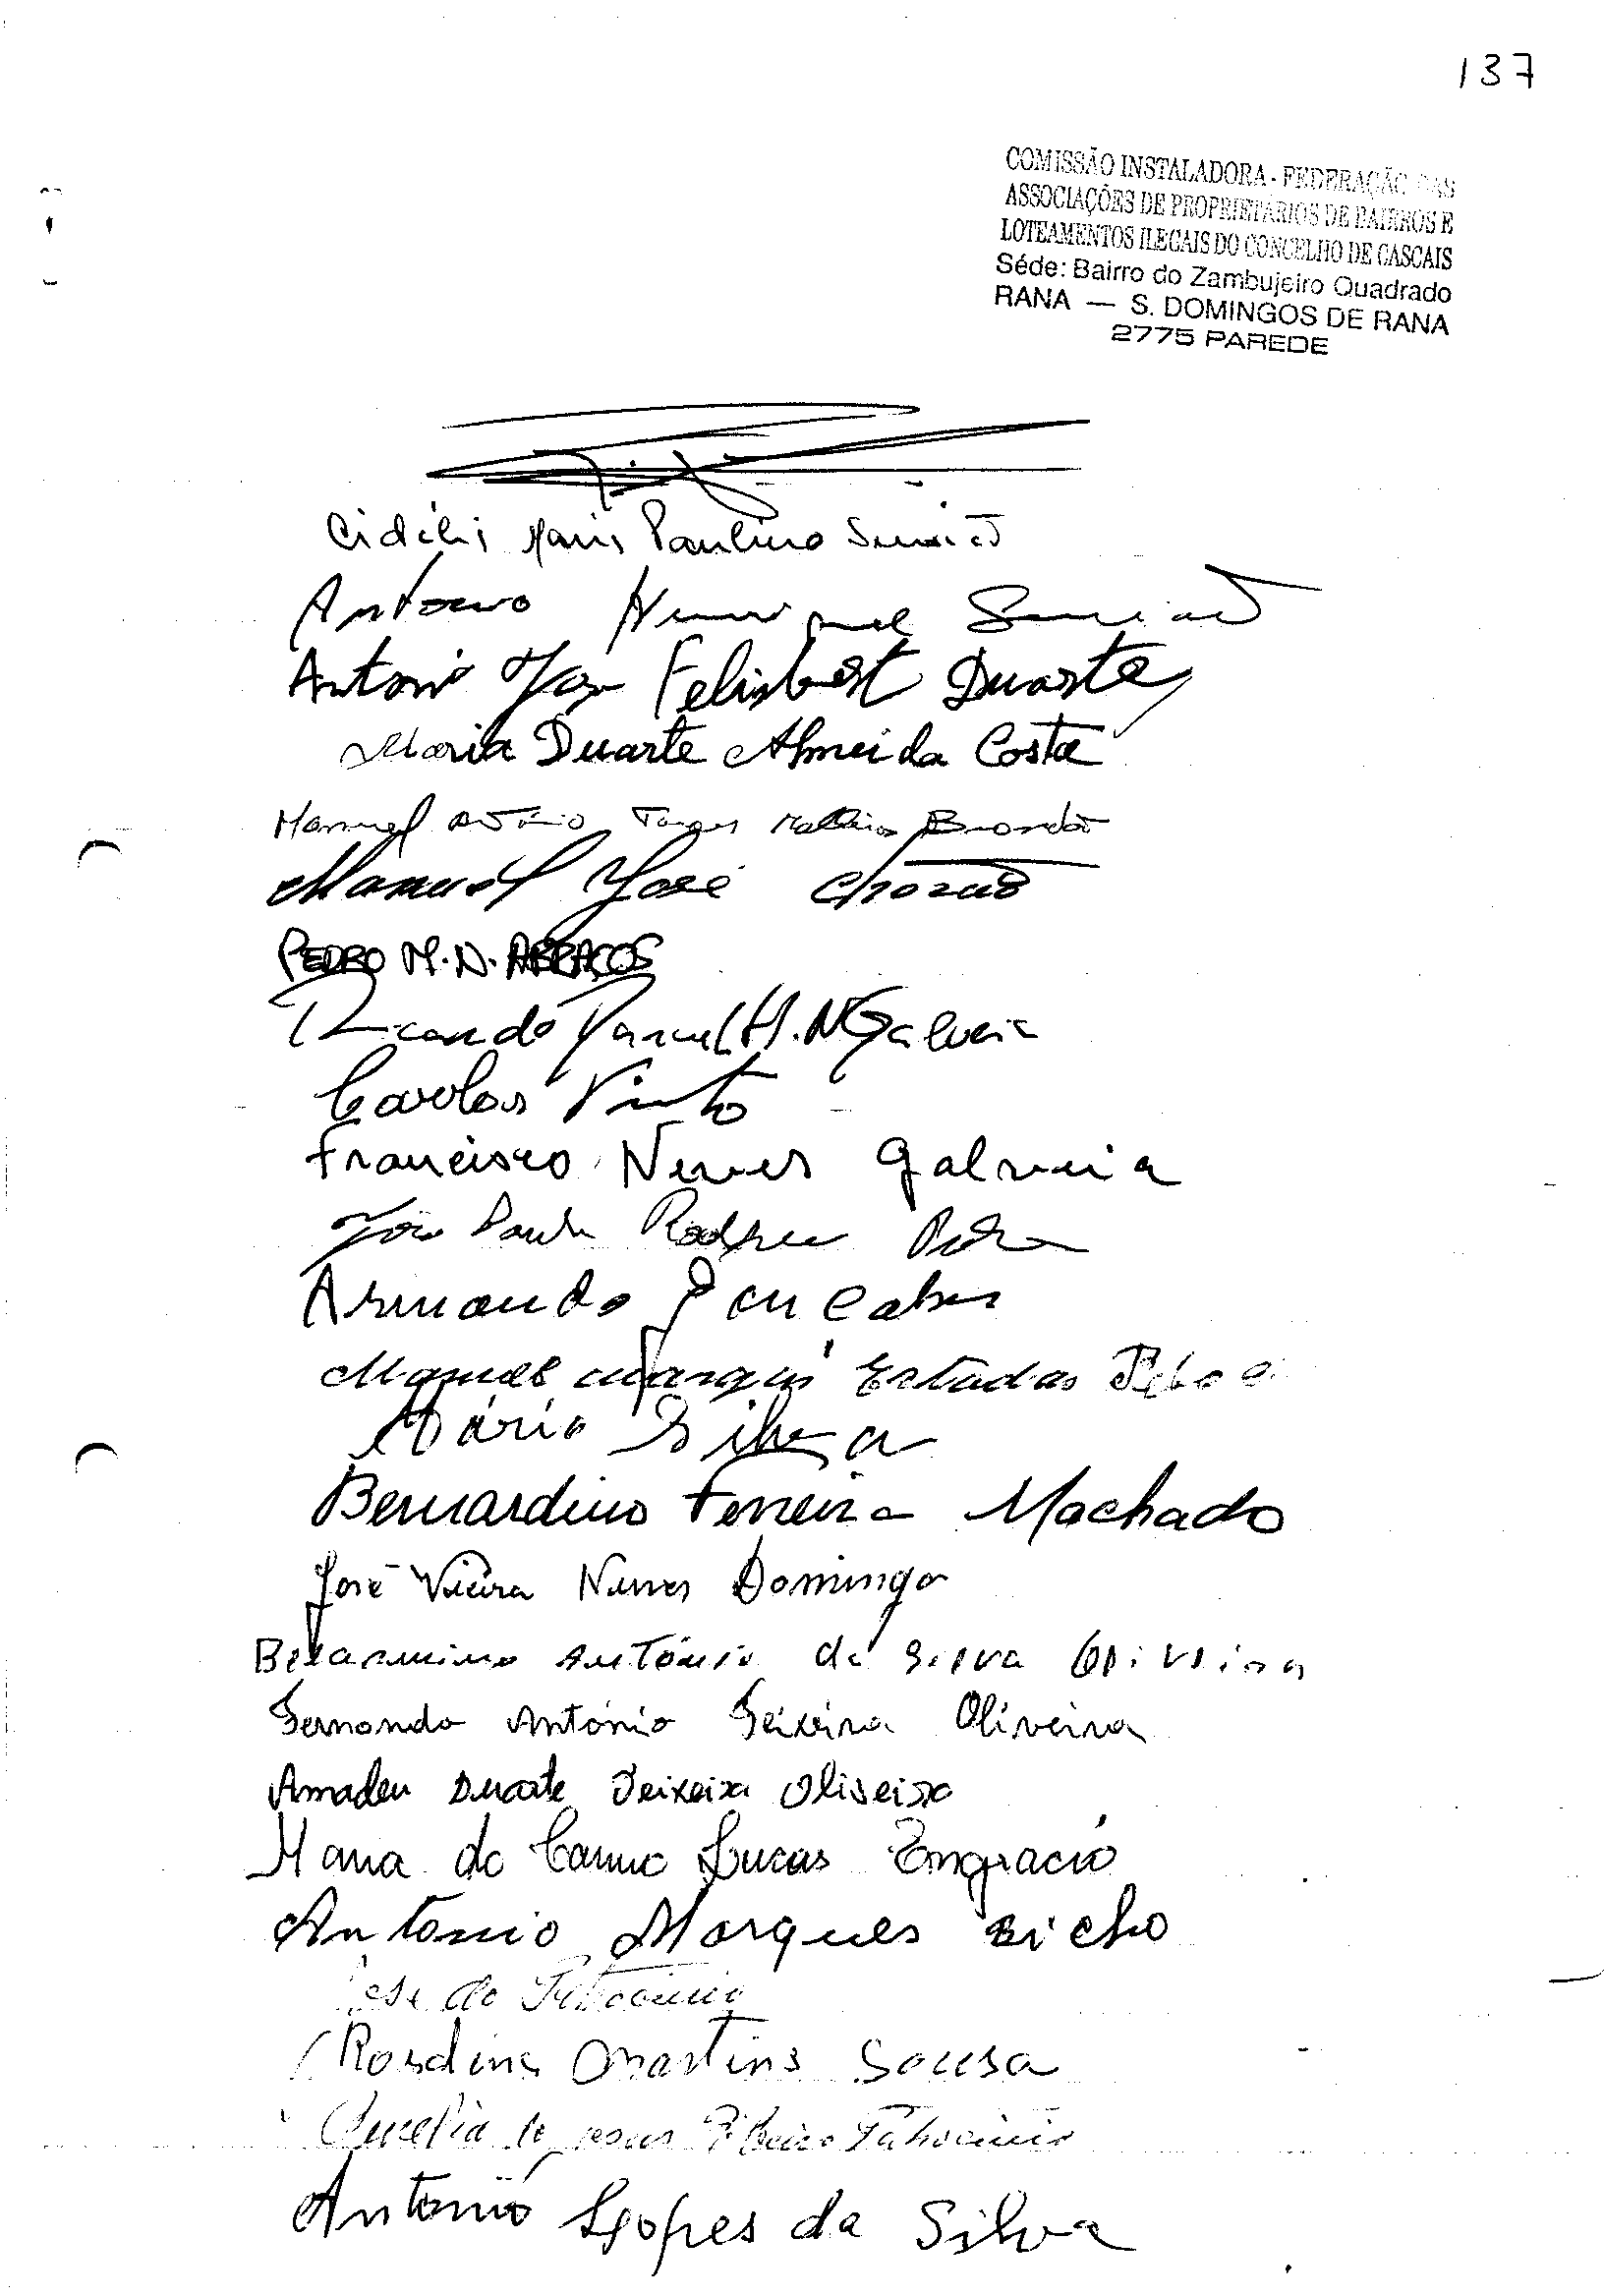 137
COMISSÃO INSTALADORA - FEDERAÇÃO DAS
ASSOCIAÇÕES DE PROPRIETÁRIOS DE BAIRROS E
LOTEAMENTOS ILEGAIS DO CONCELHO DE CASCAIS
Séde: Bairro do Zambujeiro Quadrado
RANA — S. DOMINGOS DE RANA
2775 PAREDE
Maria Paulino
Antonio Henrique
Antonio José Felisbert Duarte
Maria Duarte Almeida Costa
Manuel António Brandão
Manuel José
PEDRO M. N. ABRAÇOS
Ricardo Manuel H. N Galveia
Carlos Pinto
Francisco Neves Galveia
João Paulo
Armando Gonçalves
Manuel Marques
Mário Silva
Bernardino Ferreira Machado
José Vieira Nunes Domingos
Belarmino António da Silva Oliveira
Fernando António Teixeira Oliveira
Amadeu Duarte Teixeira Oliveira
Maria do Carmo Lucas Engrácio
Antonio Marques Bicho
do Patrocinio
Rosalina Martins Sousa
Aurelia de Jesus Ribeiro Patrocinio
Antonio Lopes da Silva